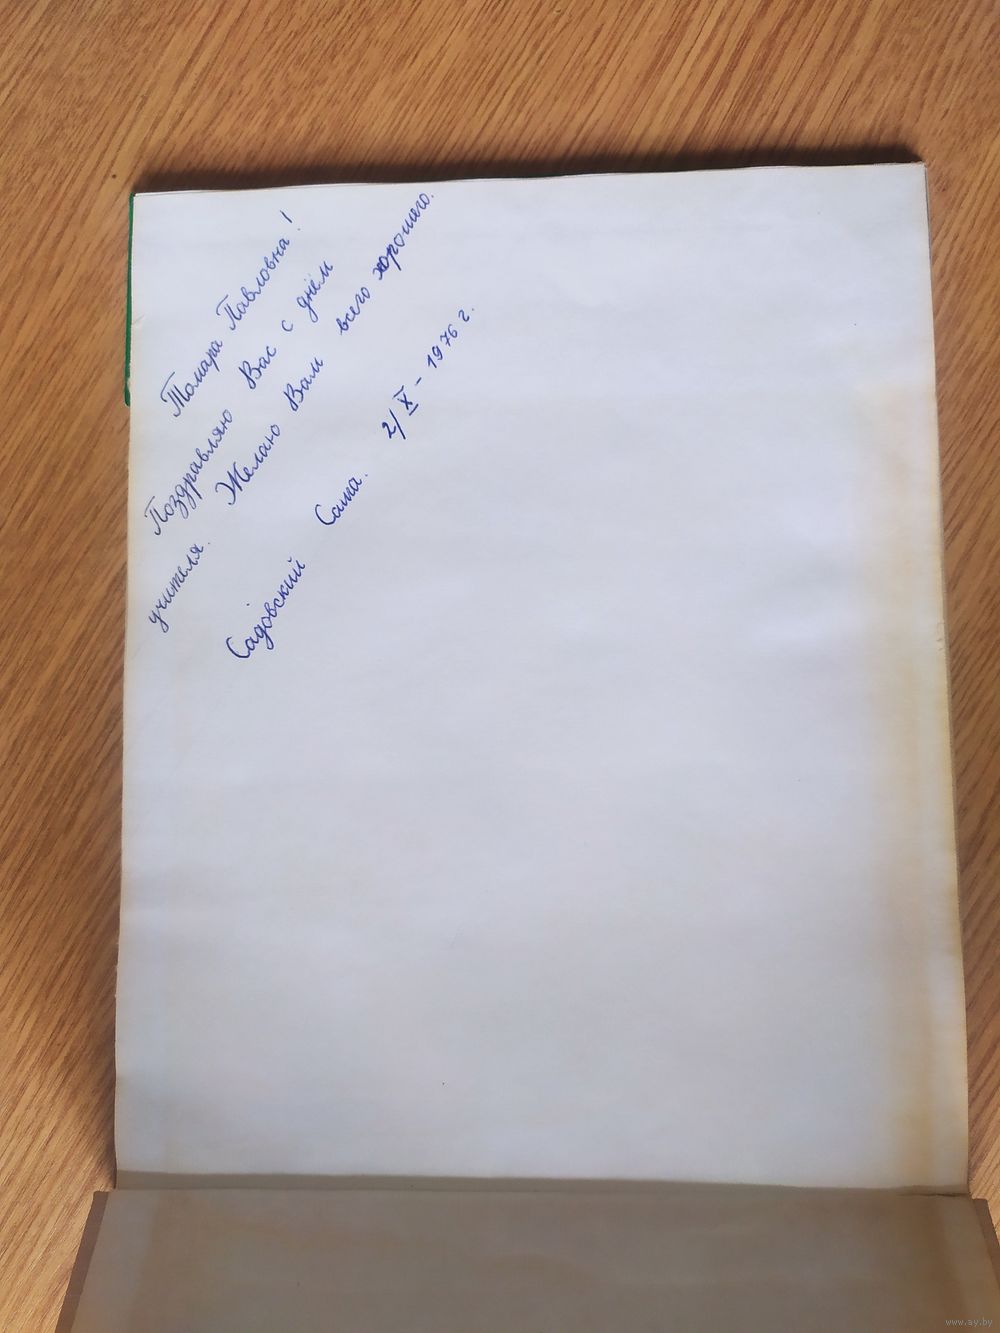 Тамара Павловна!
Поздравляю Вас с днём
учителя. Желаю Вам всего хорошего.
Садовский Саша. 2/X - 1976 г.
www.ay.by